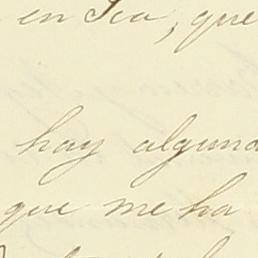 en Ica, que
hay alguna
que me ha